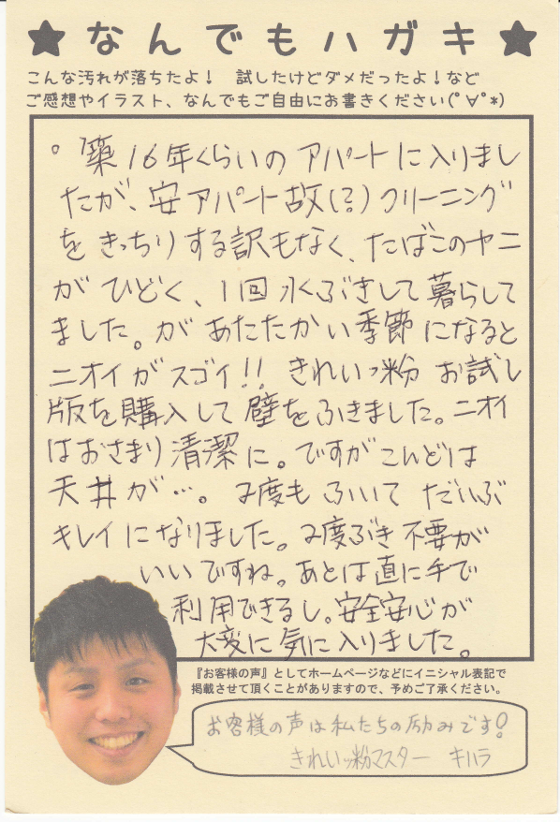 ★なんでもハガキ★
こんな汚れが落ちたよ！　試したけどダメだったよ！など
ご感想やイラスト、なんでもご自由にお書きください(ﾟ∀ﾟ*)
。築16年くらいの アパートに入りまし
たが、安アパート故(!?) クリーニング
を きっちりする訳もなく、たばこのヤニ
が ひどく、1回 水ぶきして 暮らして
ました。が あたたかい 季節 になると
ニオイ が スゴイ!! きれいッ粉 お試し
版を 購入して 壁を ふきました。ニオイ
はおさまり 清潔に。ですが こんどは
天井が…。2度も ふいて だいぶ
キレイ になりました。2度ぶき 不要が
いいですね。あとは 直に 手で
利用できるし。安全安心が
大変に 気に入りました。
『お客様の声』としてホームページなどにイニシャル表記で
掲載させて頂くことがありますので、予めご了承ください。
お客様の声は私たちの励みです!
きれいッ粉マスター　キハラ